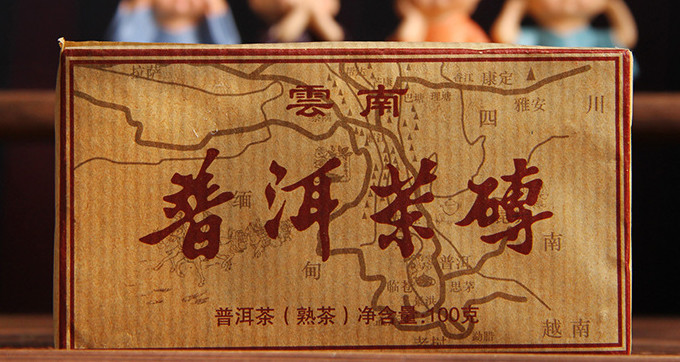 拉萨
康定
巴塘 理塘
雅安
四川
雲南
普洱茶磚
缅甸
普洱
临沧
思茅
南
普洱茶（熟茶）净含量:100克
勐腊
越南